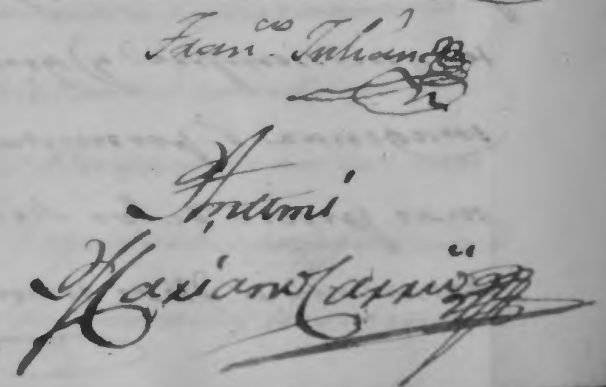 Fran.co Julian
Antemi
Mariano Carrió